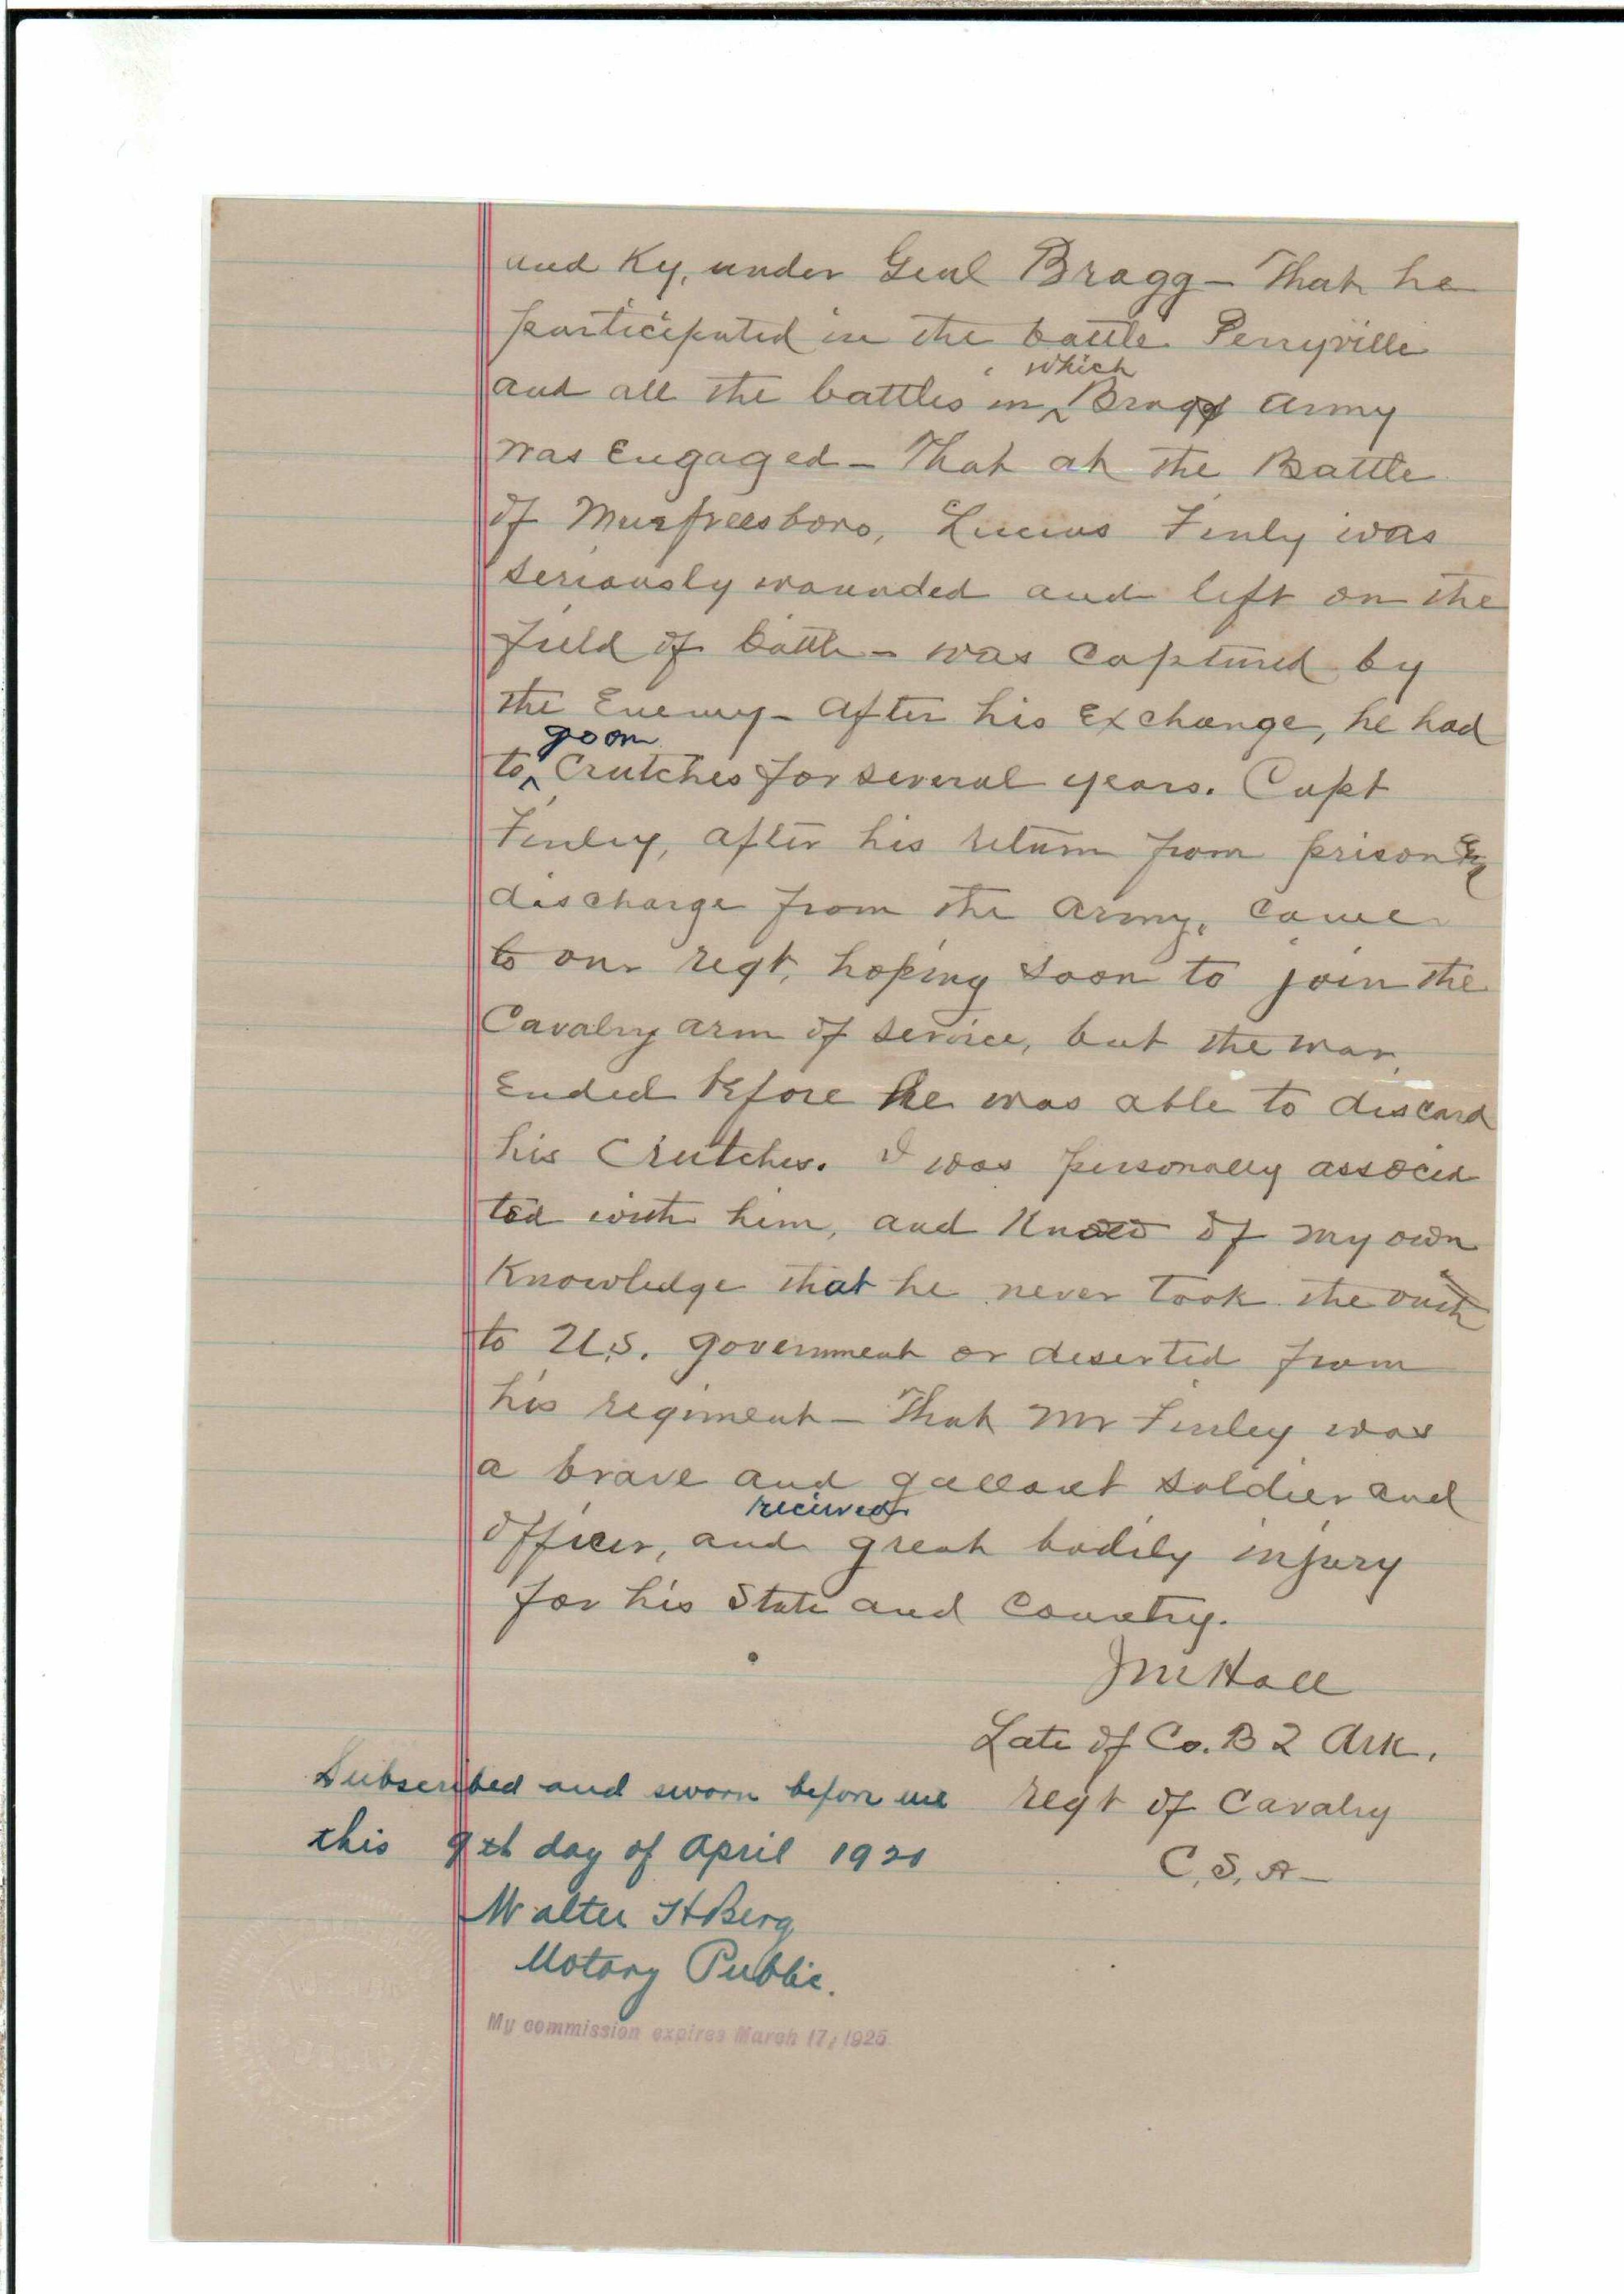 and Ky, under Genl Bragg - That he
participated in the battle Perryville
which
and all the battles in ^ Bragg Army
was Engaged - That at the Battle
of Murfreesboro, Lucius Finly was
seriously wounded and left on the
field of battle - was captured by
the Enemy - After his Exchange, he had
go on
to ^ Crutches for several years. Capt
Finley, after his return from prison &
discharge from the Army, came
to our regt, hoping soon to join the
Cavalry arm of service, but the war
Ended before he was able to discard
his Crutches. I was personally associa
ted with him, and Know of my own
Knowledge that he never took the oath
to U.S. government or deserted from
his regiment - That Mr Finley was
a brave and gallant soldier and
recieved
officer, and great bodily injury
for his State and Country.
J M Hall
Late of Co. B 2 Ark.
regt of Cavalry
C. S. A -
Subscribed and sworn before me
this 9th day of April 1921
Walter H Berg
Notary Public.
My commission expires March 17, 1925